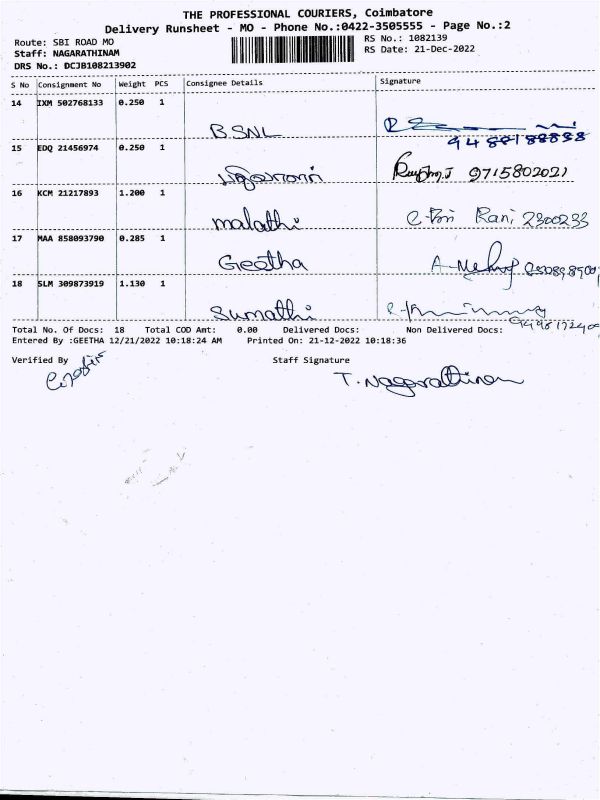 THE PROFESSIONAL COURIERS, Coimbatore
Delivery Runsheet - MO - Phone No.:0422-3505555 - Page No.:2
Route: SBI ROAD MO
RS No.: 1082139
Staff: NAGARATHINAM
RS Date: 21-Dec-2022
DRS No.: DCJB108213902
S No Consignment No Weight PCS Consignee Details Signature
14 IXM 502768133 0.250 1
BSNL
9488188888
15 EDQ 21456974 0.250 1
9715802021
16 KCM 21217893 1.200 1
malathi Rani 2300233
17 MAA 858093790 0.285 1
Geetha
18 SLM 309873919 1.130 1
Sumathi
Total No. Of Docs: 18 Total COD Amt: 0.00 Delivered Docs: Non Delivered Docs:
Entered By :GEETHA 12/21/2022 10:18:24 AM Printed On: 21-12-2022 10:18:36
Verified By Staff Signature
T. Nagarathinam